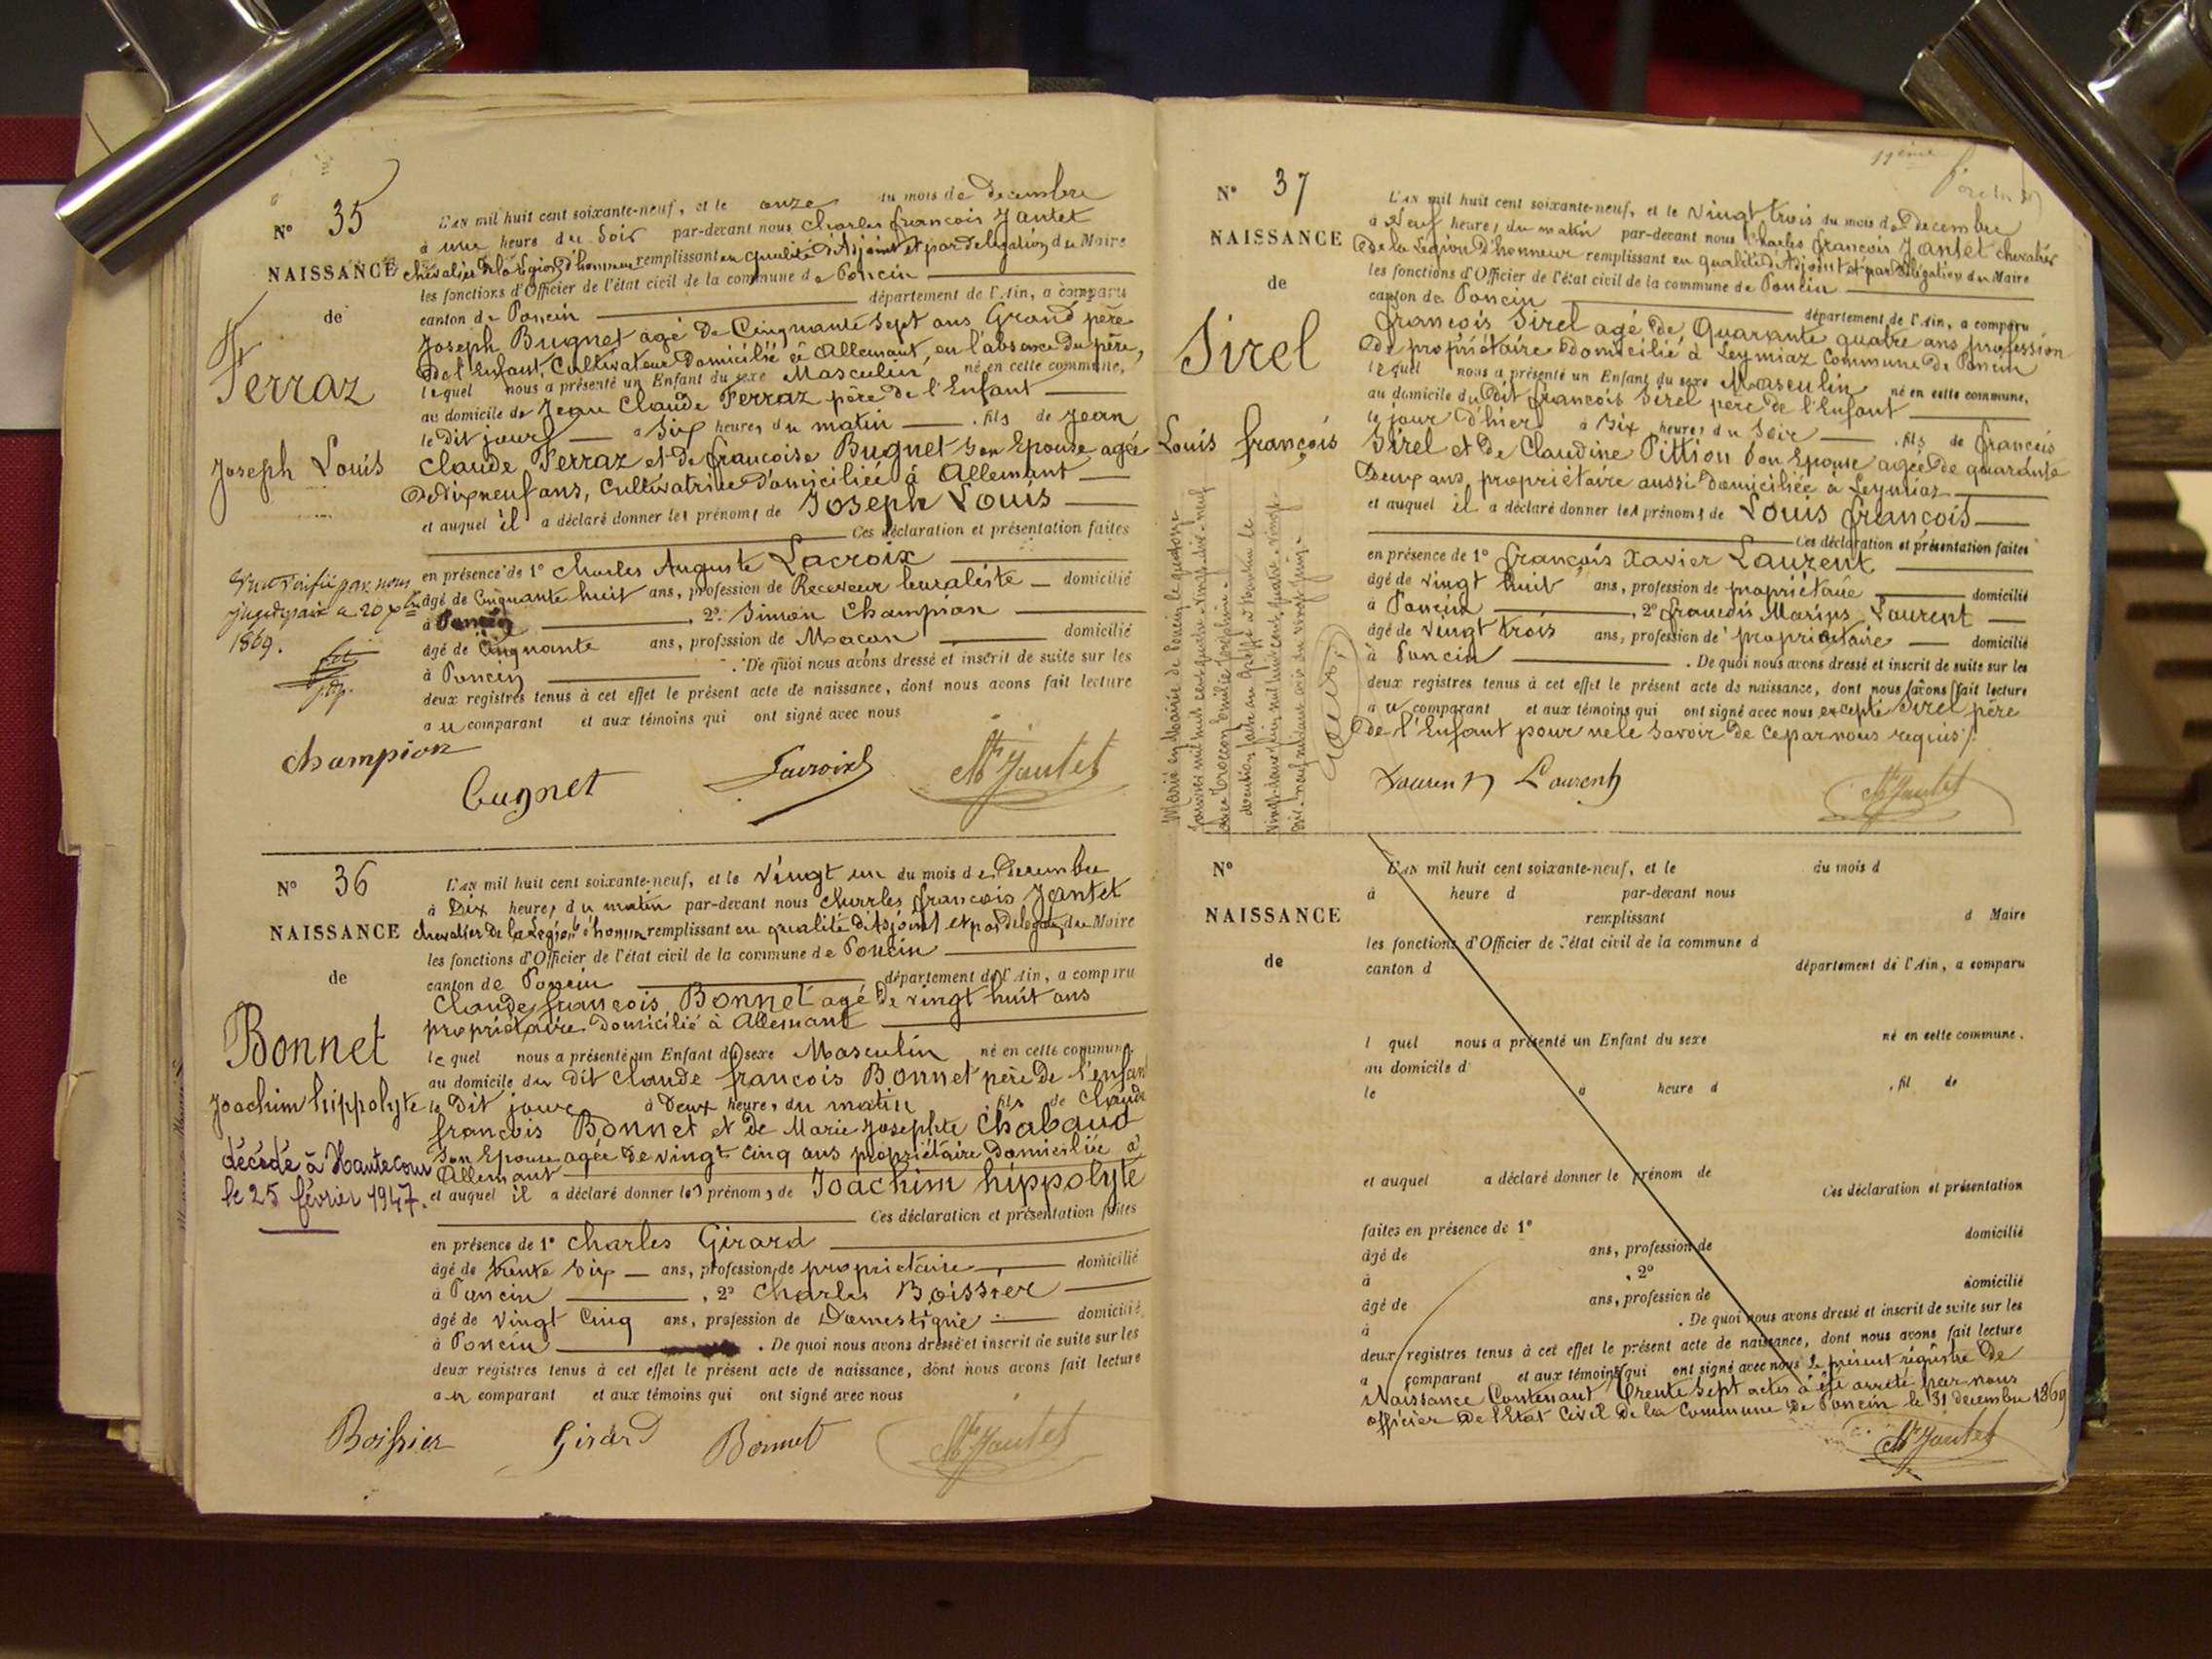 N° 35
NAISSANCE
de
Ferraz
Joseph Louis
L'AN mil huit cent soixante-neuf, et le onze du mois de Decembre
à une heure du Soir par-devant nous Charles françois Jantet
chevalier de la Légion d'honneur remplissant en qualité d'Adjoint et par délégation du Maire
les fonctions d'Officier de l'état civil de la commune de Poncin
canton de Poncin département de l'Ain, a comparu
Joseph Bugnet agé de Cinquante Sept ans Grand père
De l'Enfant, Cultivateur Domicilié à Allemant, en l'absence du père,
lequel nous a présenté un Enfant du sexe Masculin né en cette commune,
au domicile de Jean Claude Ferraz père de l'Enfant
le Dit jour à Six heures du matin . fils de Jean
Claude Ferraz et de françoise Bugnet Son Epouse agée
De Dix neuf ans, Cultivatrice Domiciliée à Allemant
et auquel il a déclaré donner les prénoms de Joseph Louis
Ces déclaration et présentation faites
en présence de 1° Charles Auguste Lacroix
âgé de Cinquante huit ans, profession de Receveur buraliste domicilié
à Poncin , 2° Simon Champion
âgé de Cinquante ans, profession de Maçon domicilié
à Poncin . De quoi nous avons dressé et inscrit de suite sur les
deux registres tenus à cet effet le présent acte de naissance, dont nous avons fait lecture
au comparant et aux témoins qui ont signé avec nous
Vu et vérifié par nous
juge de paix le 20 Xbre
1869.
Champion
Bugnet
Lacroix
Ch. Jantet
N° 36
NAISSANCE
de
Bonnet
Joachim hippolyte
décédé à Hautecour
le 25 février 1947.
L'AN mil huit cent soixante-neuf, et le Vingt un du mois de Decembre
à Dix heures du matin par-devant nous Charles françois Jantet
chevalier de la Légion d'honneur remplissant en qualité d'Adjoint et par délégation du Maire
les fonctions d'Officier de l'état civil de la commune de Poncin
canton de Poncin département de l'Ain, a comparu
Claude françois Bonnet agé De vingt huit ans
propriétaire Domicilié à Allemant
lequel nous a présenté un Enfant du sexe Masculin né en cette commune.
au domicile du Dit Claude françois Bonnet père De l'enfant
le Dit jour à Deux heures du matin . fils de Claude
françois Bonnet et de Marie Josephte Chabaud
Son Epouse agée De vingt cinq ans propriétaire Domiciliée à
Allemant
et auquel il a déclaré donner les prénoms de Joachim hippolyte
Ces déclaration et présentation faites
en présence de 1° Charles Girard
âgé de trente Six ans, profession de propriétaire domicilié
à Poncin , 2° Charles Boissier
âgé de Vingt Cinq ans, profession de Domestique domicilié
à Poncin . De quoi nous avons dressé et inscrit de suite sur les
deux registres tenus à cet effet le présent acte de naissance, dont nous avons fait lecture
au comparant et aux témoins qui ont signé avec nous
Boissier
Girard
Bonnet
Ch. Jantet
11ème
N° 37
NAISSANCE
de
Sirel
Louis françois
L'AN mil huit cent soixante-neuf, et le Vingt trois du mois de Decembre
à Neuf heures, du matin par-devant nous Charles françois Jantet chevalier
De la Légion D'honneur remplissant en qualité d'Adjoint et par délégation du Maire
les fonctions d'Officier de l'état civil de la commune de Poncin
canton de Poncin département de l'Ain, a comparu
françois Sirel agé de Quarante quatre ans profession
De propriétaire Domicilié à Leymiaz Commune De Poncin
lequel nous a présenté un Enfant du sexe Masculin né en cette commune,
au domicile du Dit françois Sirel père de l'Enfant
le jour D'hier à Six heures du Soir . fils de françois
Sirel et De Claudine Pittion Son Epouse agée De quarante
Deux ans, propriétaire aussi Domiciliée à Leymiaz
et auquel il a déclaré donner les prénoms de Louis françois
Ces déclaration et présentation faites
en présence de 1° françois Xavier Laurent
âgé de vingt huit ans, profession de propriétaire domicilié
à Poncin , 2° françois Marius Laurent
âgé de vingt trois ans, profession de propriétaire domicilié
à Poncin . De quoi nous avons dressé et inscrit de suite sur les
deux registres tenus à cet effet le présent acte de naissance, dont nous avons fait lecture
au comparant et aux témoins qui ont signé avec nous excepté Sirel père
De l'Enfant pour ne le Savoir De ce par nous requis.
Marié en Mairie de Poncin le quatorze
Janvier mil huit cent quatre-vingt-dix-neuf
Laurent Laurent
Ch. Jantet
N°
NAISSANCE
de
L'AN mil huit cent soixante-neuf, et le du mois d
à heure d par-devant nous
remplissant d Maire
les fonctions d'Officier de l'état civil de la commune d
canton d département de l'Ain, a comparu
l quel nous a présenté un Enfant du sexe né en cette commune,
au domicile d
le à heure d , fil de
et auquel a déclaré donner le prénom de
Ces déclaration et présentation
faites en présence de 1° domicilié
âgé de ans, profession de
à , 2°
âgé de ans, profession de domicilié
à . De quoi nous avons dressé et inscrit de suite sur les
deux registres tenus à cet effet le présent acte de naissance, dont nous avons fait lecture
a comparant et aux témoins qui ont signé avec nous Le présent régistre De
Naissance Contenant Trente Sept actes à été arrété par nous
officier De l'Etat Civil De la Commune De Poncin le 31 decembre 1869
Ch. Jantet